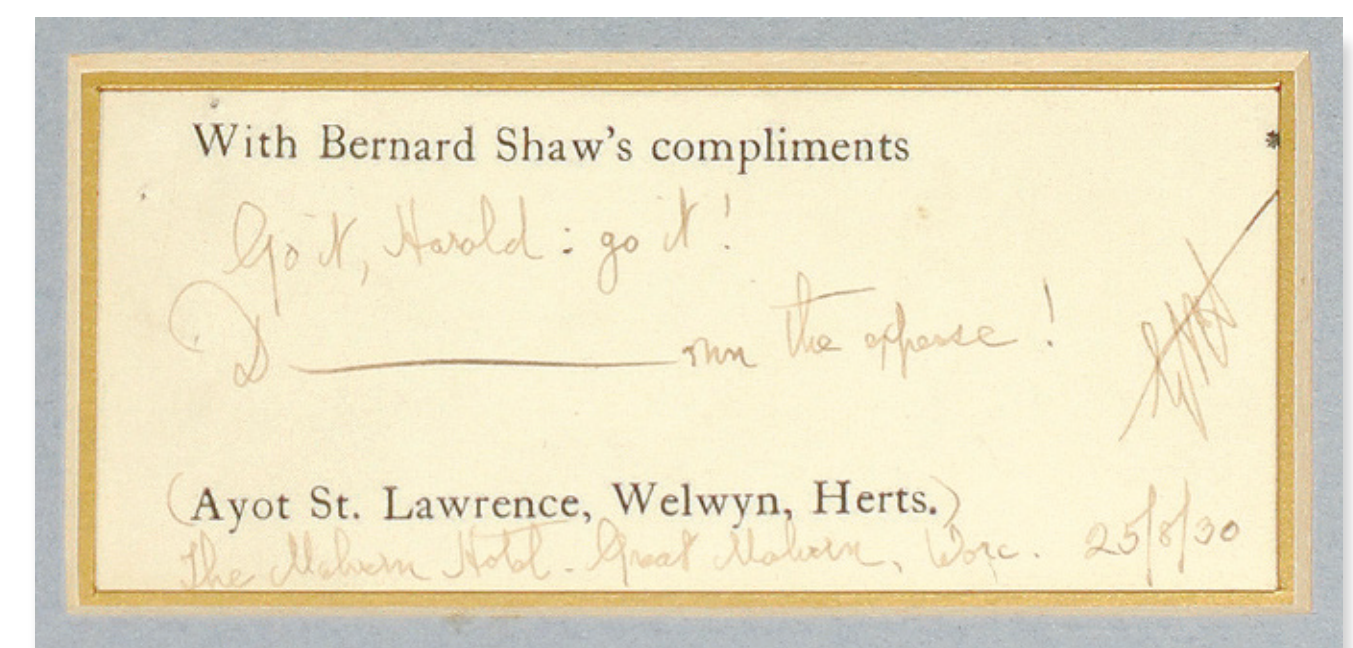 With Bernard Shaw's compliments
Go it, Harold : go it !
D________mn the expense !
(Ayot St. Lawrence, Welwyn, Herts.)
The Malvern Hotel - Great Malvern, Worc. 25/8/30